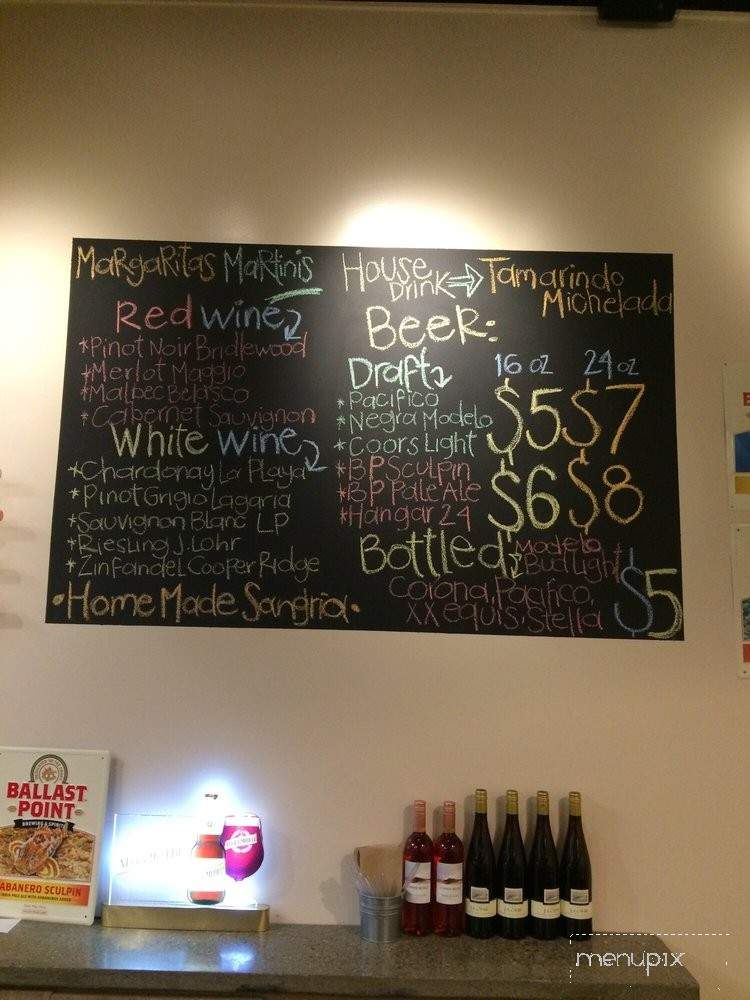 Margaritas Martinis
Red Wine
*Pinot Noir Bridlewood
*Merlot Maggio
*Malbec Belasco
*Cabernet Sauvignon
White Wine
*Chardonay La Playa
*Pinot Grigio Lagaria
*Sauvignon Blanc LP
*Riesling J. Lohr
*Zinfandel Cooper Ridge
•Home Made Sangria•
House Drink ⇒ Tamarindo Michelada
Beer:
Draft 16 oz 24 oz
*Pacifico
*Negra Modelo $5 $7
*Coors Light
*BP Sculpin
*BP Pale Ale $6 $8
*Hangar 24
Bottled Modelo
Bud Light
Corona, Pacifico, $5
XX equis, Stella
BALLAST
POINT
BREWING & SPIRITS
HABANERO SCULPIN
INDIA PALE ALE WITH HABANEROS ADDED
menupix